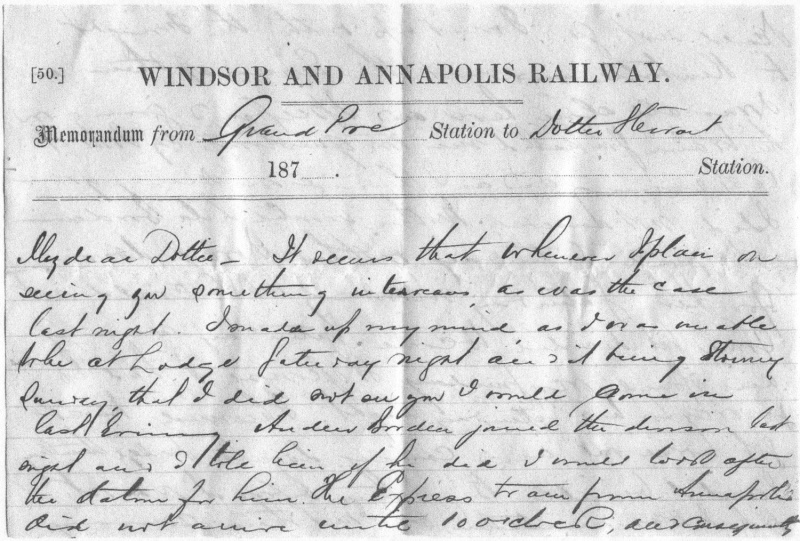 [50.] WINDSOR AND ANNAPOLIS RAILWAY.
Memorandum from Grand Pré Station to Dottie Stewart
187 . Station.
My dear Dottie – It seems that whenever I plan on
seeing you something intervens, as was the case
last night. I made up my mind, as I was unable
to be at Lodge Saturday night and it being Stormy
Sunday that I did not see you I would come in
last Evening Borden joined the division last
night and I told him if he did I would look after
the station for him. The Express train from Annapolis
did not arrive until 10 oclock, and consequently